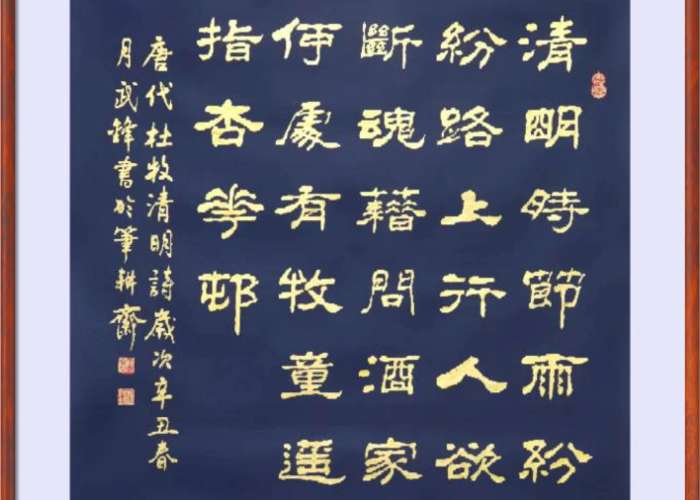 清明時節雨紛
紛路上行人欲
斷魂藉問酒家
何處有牧童遥
指杏花邨
唐代杜牧清明詩歲次辛丑春
月武鋒書於筆耕齋